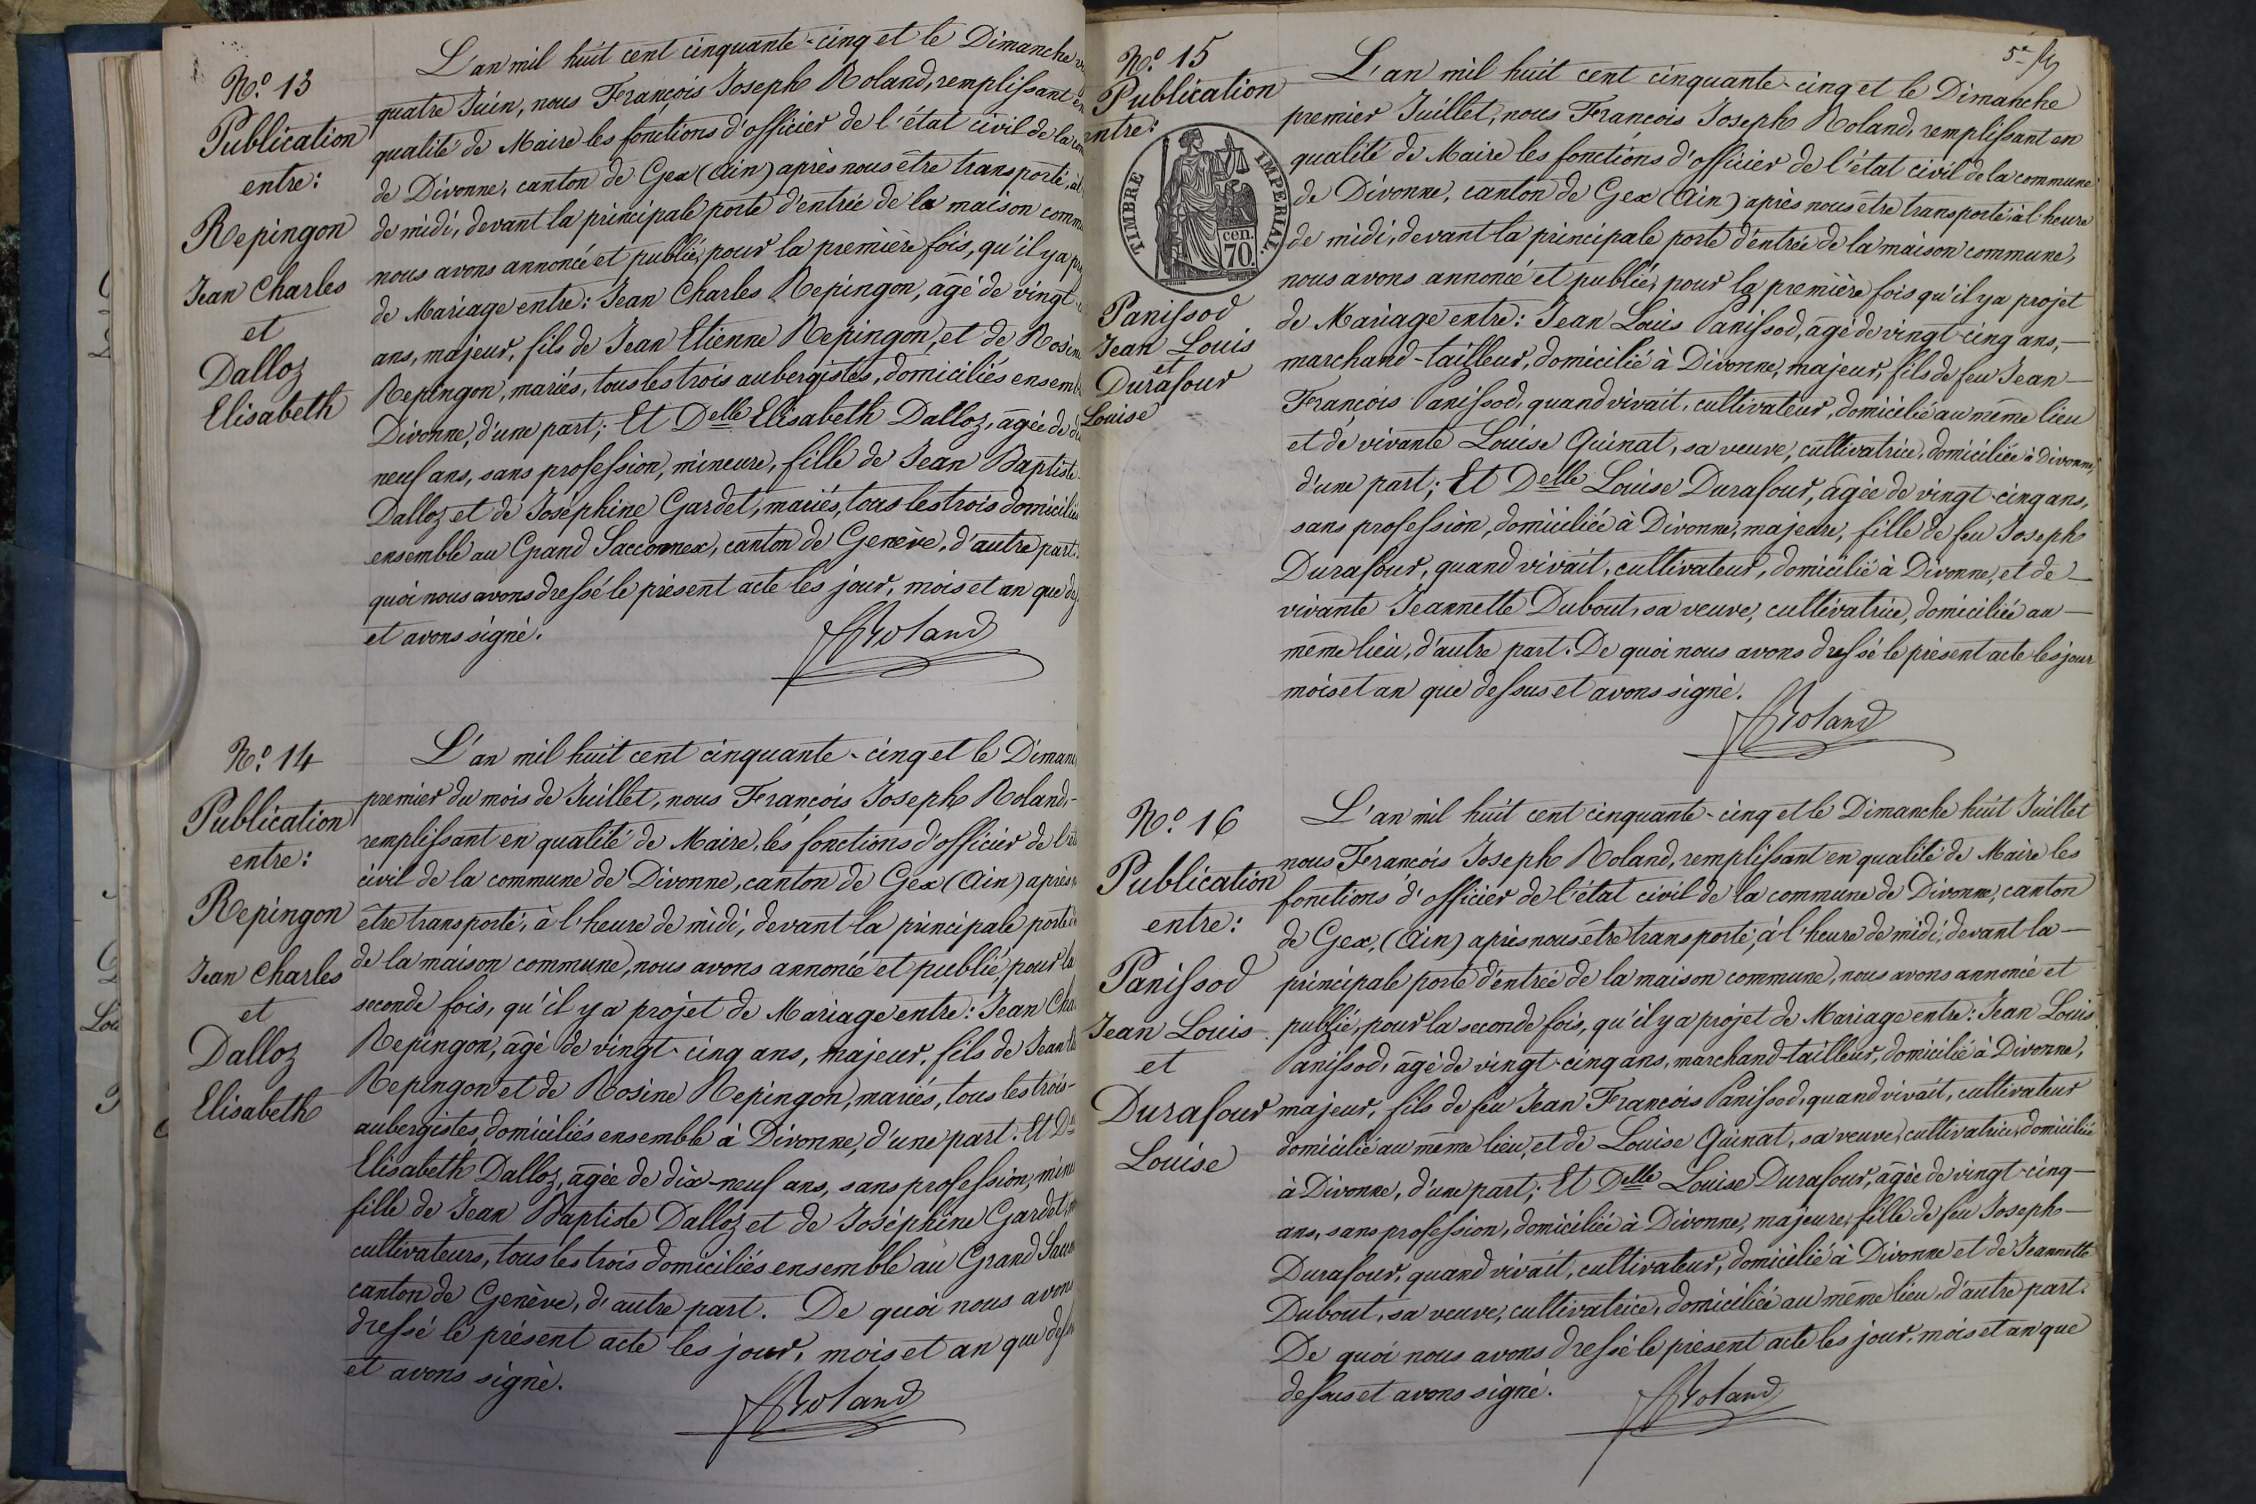 N.º 13
Publication
entre:
Repingon
Jean Charles
et
Dalloz
Elisabeth
L'an mil huit cent cinquante-cinq et le Dimanche
quatre Juin, nous François Joseph Roland, remplissant en
qualité de Maire les fonctions d'officier de l'état civil de la com
de Divonne, canton de Gex (Ain) après nous être transporté, à l
de midi, devant la principale porte d'entrée de la maison comm
nous avons annoncé et publié, pour la première fois, qu'il y a pr
de Mariage entre: Jean Charles Repingon, âgé de vingt
ans, majeur, fils de Jean Etienne Repingon, et de Rosine
Repingon, mariés, tous les trois aubergistes, domiciliés ensemb
Divonne, d'une part; Et Delle Elisabeth Dalloz, âgée de di
neuf ans, sans profession, mineure, fille de Jean Baptiste
Dalloz et de Joséphine Gardet, mariés, tous les trois domicilié
ensemble au Grand Sacconnex, canton de Genève, d'autre part.
quoi nous avons dressé le présent acte les jour, mois et an que de
et avons signé.
Roland
N.º 14
Publication
entre:
Repingon
Jean Charles
et
Dalloz
Elisabeth
L'an mil huit cent cinquante-cinq et le Dimanc
premier du mois de Juillet, nous François Joseph Roland,-
remplissant en qualité de Maire, les fonctions d'officier de l'ét
civil de la commune de Divonne, canton de Gex (Ain) après n
être transporté, à l'heure de midi, devant la principale porte
de la maison commune, nous avons annoncé et publié, pour la
seconde fois, qu'il y a projet de Mariage entre: Jean Cha
Repingon, âgé de vingt-cinq ans, majeur, fils de Jean
Repingon et de Rosine Repingon, mariés, tous les trois-
aubergistes, domiciliés ensemble à Divonne, d'une part. Et D
Elisabeth Dalloz, âgée de dix-neuf ans, sans profession, mine
fille de Jean Baptiste Dalloz et de Joséphine Gardet,
cultivateurs, tous les trois domiciliés ensemble au Grand Sacco
canton de Genève, d'autre part. De quoi nous avons
dressé le présent acte les jour, mois et an que dess
et avons signé.
Roland
5e
N.º 15
Publication
entre:
TIMBRE IMPERIAL.
cen.
70.
Panissod
Jean Louis
et
Durafour
Louise
L'an mil huit cent cinquante-cinq et le Dimanche
premier Juillet, nous François Joseph Roland, remplissant en
qualité de Maire les fonctions d'officier de l'état civil de la commune
de Divonne, canton de Gex (Ain) après nous être transporté, à l'heure
de midi, devant la principale porte d'entrée de la maison commune,
nous avons annoncé et publié, pour la première fois qu'il y a projet
de Mariage entre: Jean Louis Panissod, âgé de vingt-cinq ans,-
marchand-tailleur, domicilié à Divonne, majeur, fils de feu Jean-
François Panissod, quand vivait, cultivateur, domicilié au même lieu
et de vivante Louise Guinat, sa veuve, cultivatrice, domiciliée à Divonne,
d'une part; Et Delle Louise Durafour, âgée de vingt-cinq ans,
sans profession, domiciliée à Divonne, majeure, fille de feu Joseph
Durafour, quand vivait, cultivateur, domicilié à Divonne, et de-
vivante Jeannette Dubout, sa veuve, cultivatrice, domiciliée au-
même lieu, d'autre part. De quoi nous avons dressé le présent acte les jour
mois et an que dessus et avons signé.
Roland
N.º 16
Publication
entre:
Panissod
Jean Louis
et
Durafour
Louise
L'an mil huit cent cinquante-cinq et le Dimanche huit Juillet
nous François Joseph Roland, remplissant en qualité de Maire les
fonctions d'officier de l'état civil de la commune de Divonne, canton
de Gex, (Ain) après nous être transporté, à l'heure de midi, devant la-
principale porte d'entrée de la maison commune, nous avons annoncé et
publié, pour la seconde fois, qu'il y a projet de Mariage entre: Jean Louis
Panissod, âgé de vingt-cinq ans, marchand-tailleur, domicilié à Divonne,
majeur, fils de feu Jean François Panissod, quand vivait, cultivateur
domicilié au même lieu, et de Louise Guinat, sa veuve, cultivatrice, domiciliée
à Divonne, d'une part; Et Delle Louise Durafour, âgée de vingt-cinq-
ans, sans profession, domiciliée à Divonne, majeure, fille de feu Joseph-
Durafour, quand vivait, cultivateur, domicilié à Divonne et de Jeannette
Dubout, sa veuve, cultivatrice, domiciliée au même lieu, d'autre part.
De quoi nous avons dressé le présent acte les jour, mois et an que
dessus et avons signé.
Roland